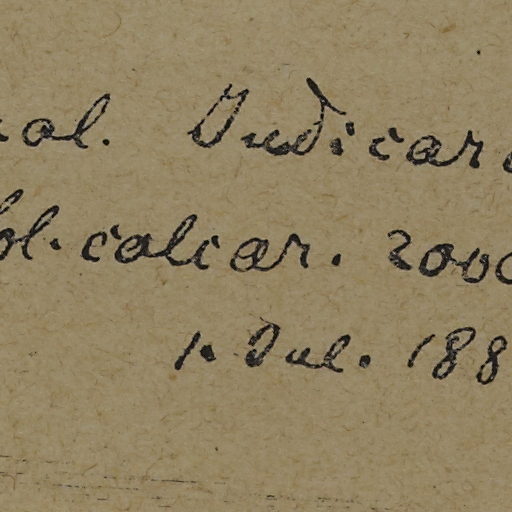 ual. Judicar
ol. calcar. 2000
1. Jul. 188